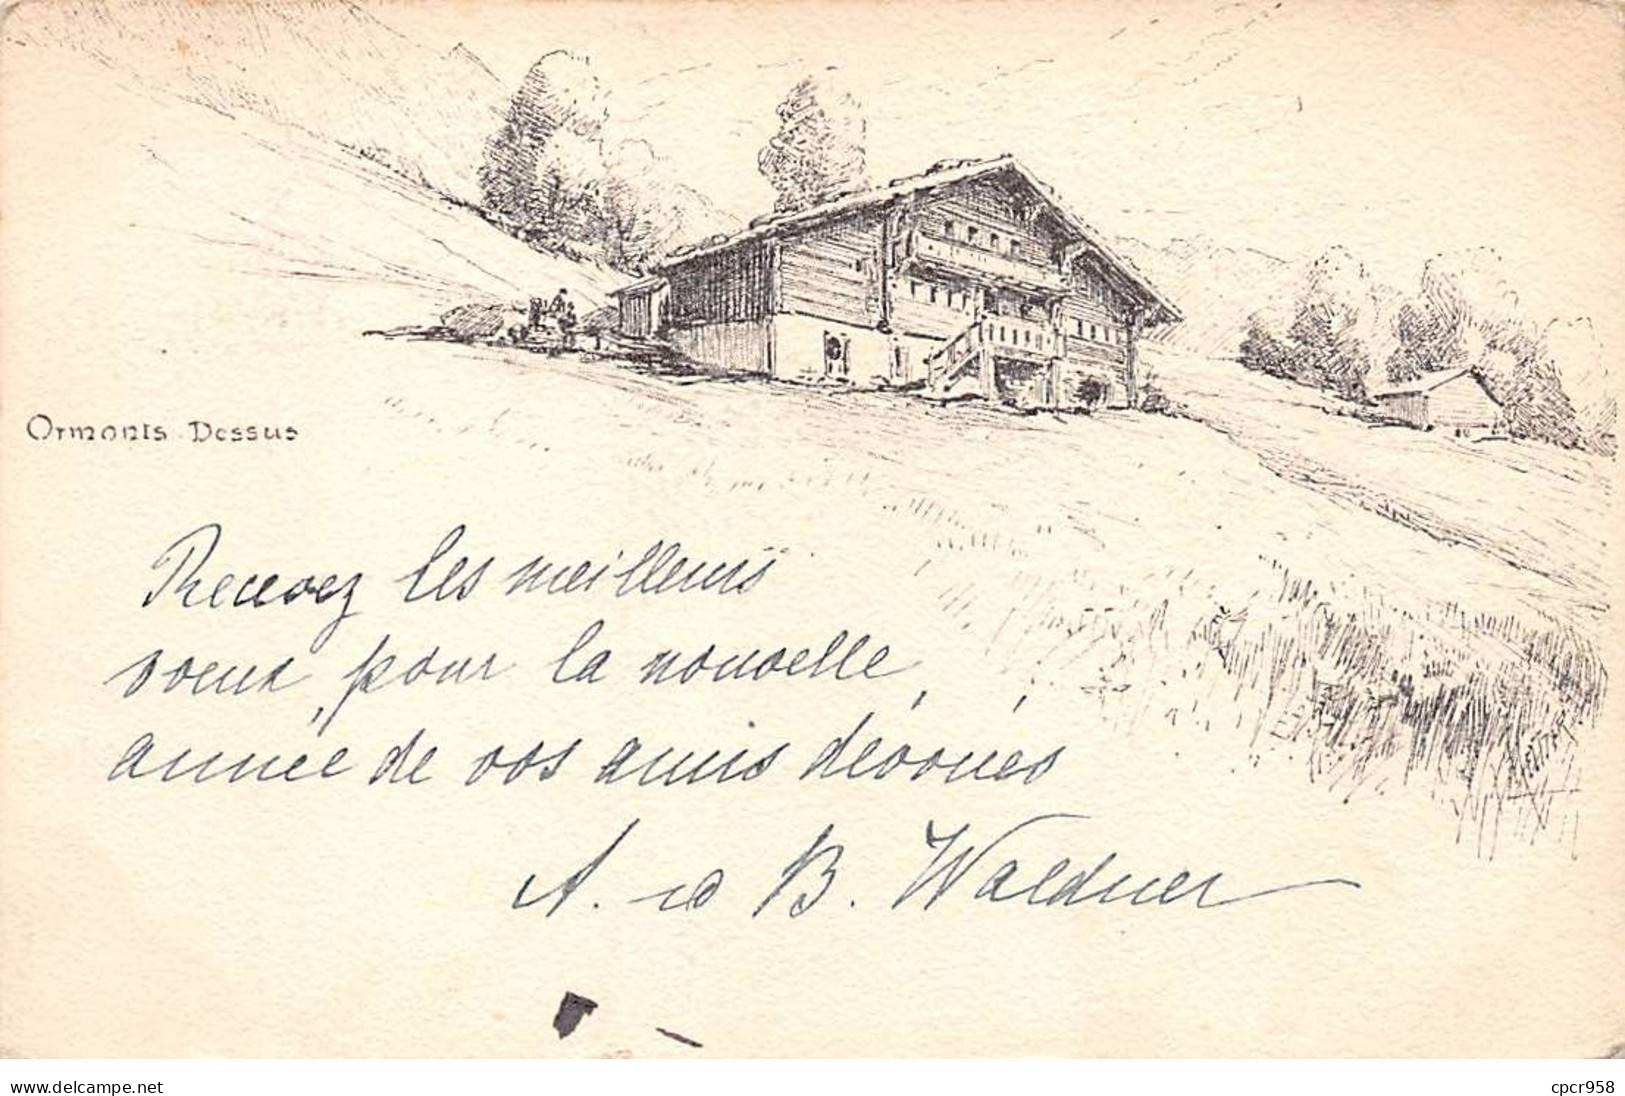 Ormonts Dessus
Recevez les meilleurs
voeux pour la nouvelle
année de vos amis dévoués
A. B. Waldner
www.delcampe.net
cpcr958